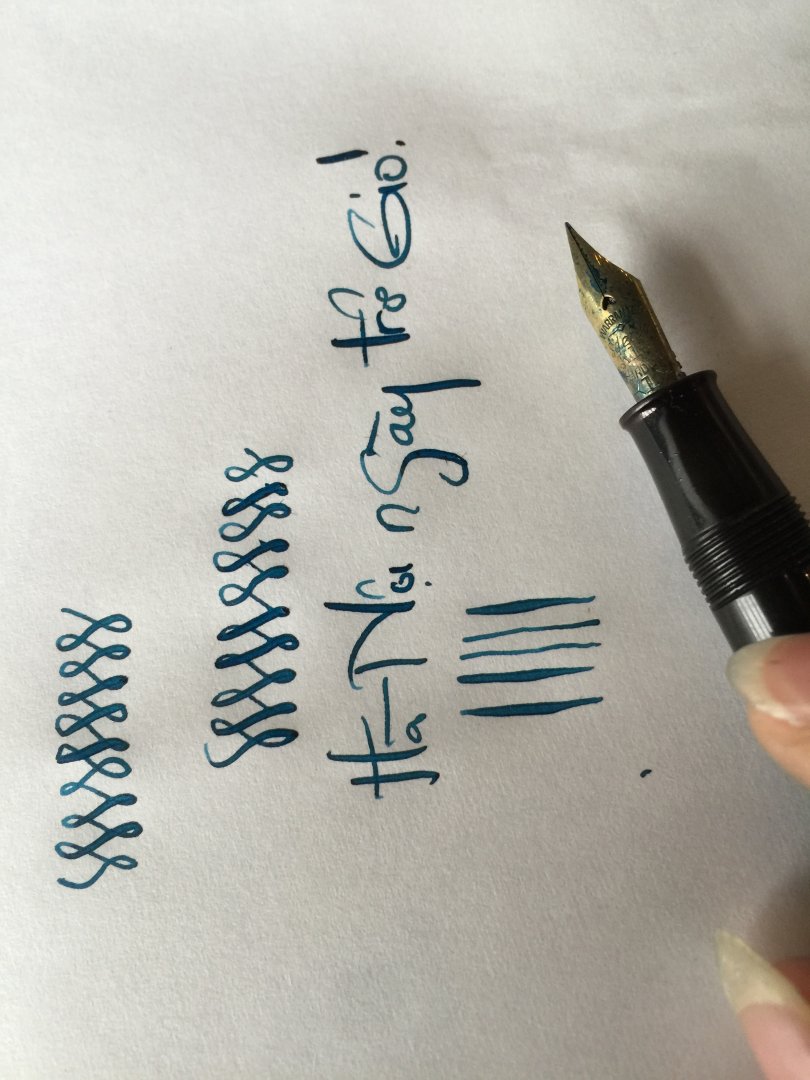 Hà Nội ngày trở Gió!
WARRANTED